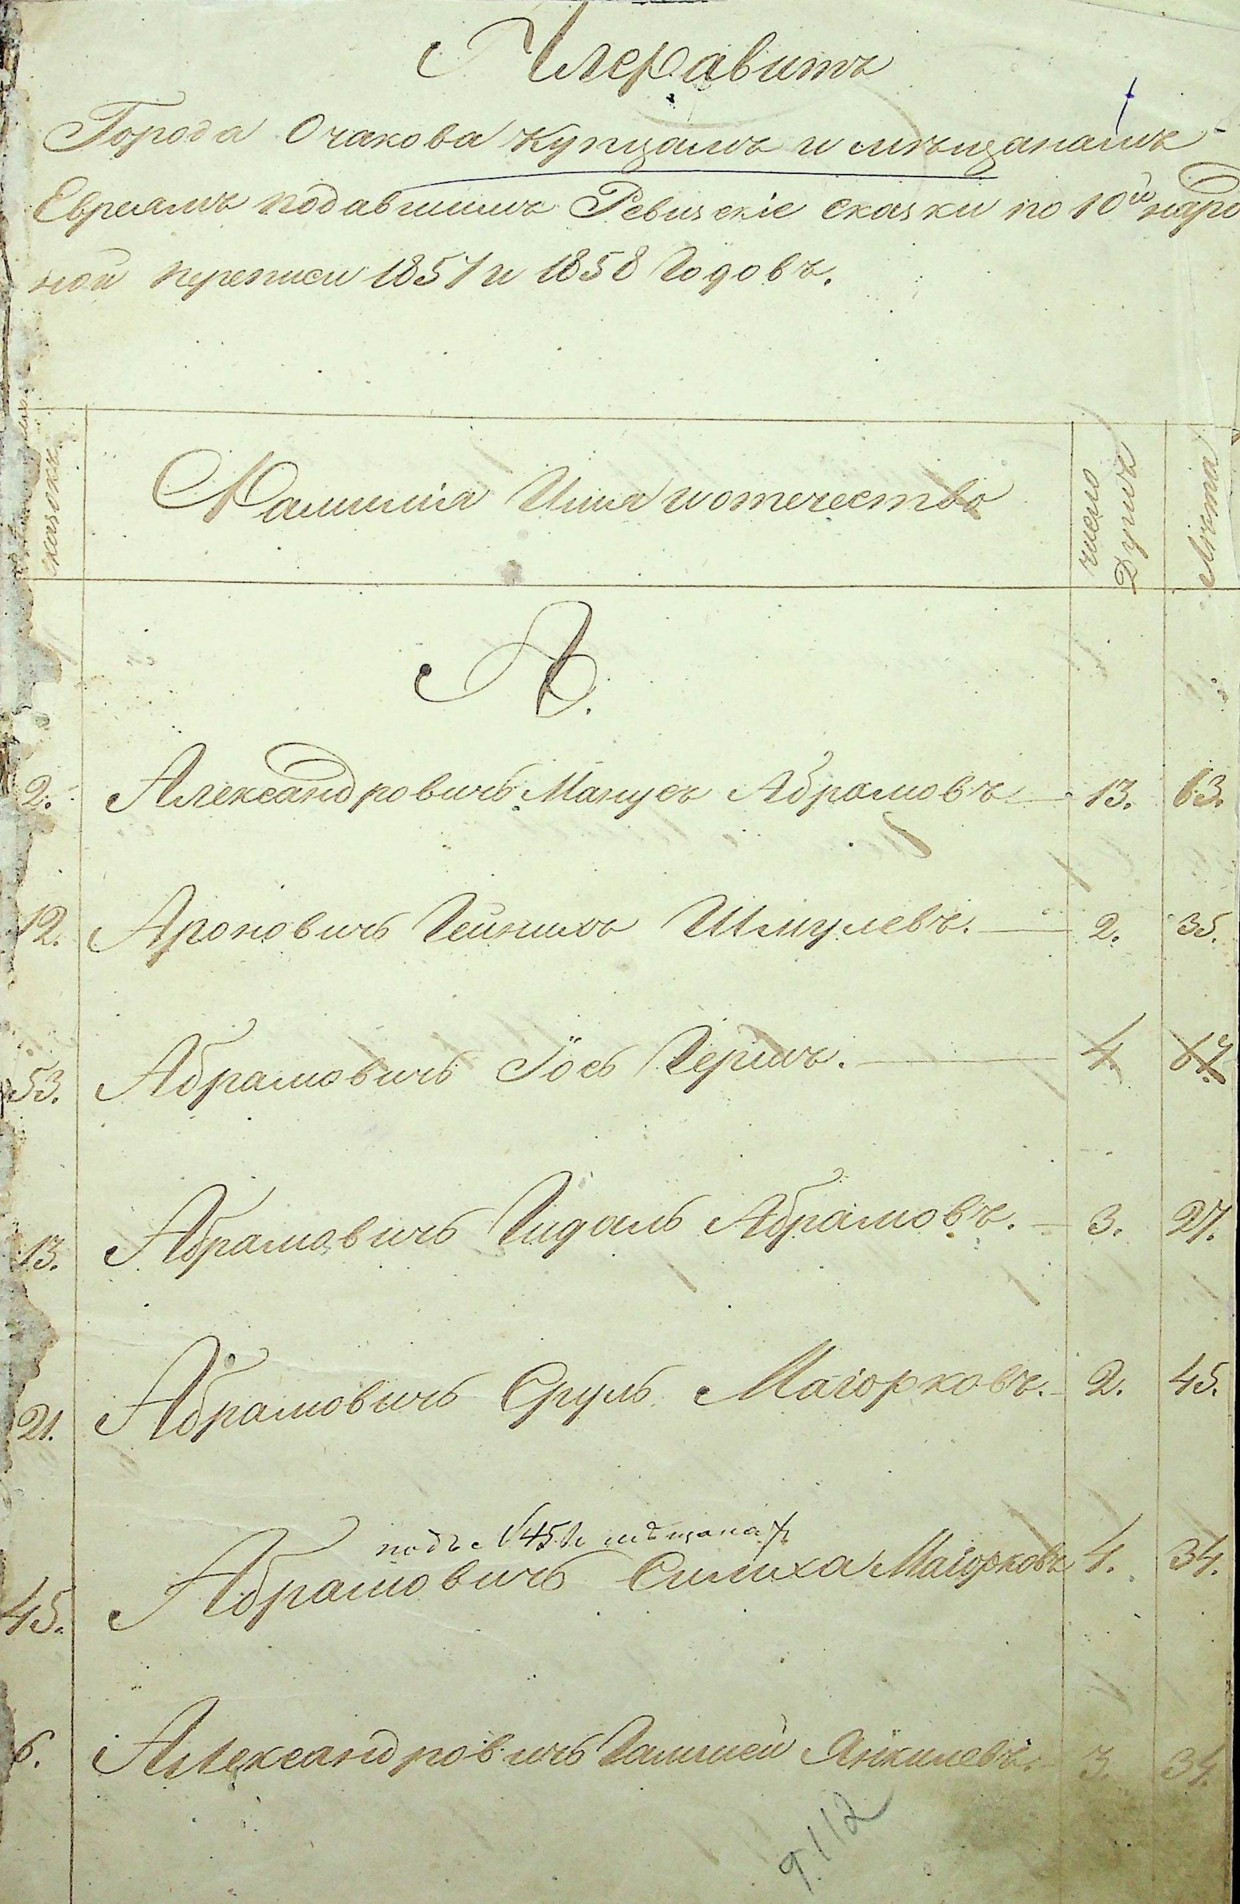 Алфавитъ
Города Очакова купцамъ и мѣщанамъ
Евреямъ подавшимъ Ревизскіе сказки по 10й народ
ной переписи 1857 и 1858 Годовъ.
сказокъ
Фамилія Имя и отечество
число Душъ
Листа
А.
2. Александровичъ Манусъ Абрамовъ 13. 63.
12. Ароновичъ Шмулевъ. 2. 35.
53. Абрамовичъ Іось Гершъ. 4. 67.
13. Абрамовичъ Гидаль Абрамовъ. 3. 27.
21. Абрамовичъ Сруль Маіорковъ. 2. 45.
подъ №45 мѣщанахъ
45. Абрамовичъ Симха Маіорковъ 4. 34.
6. Александровичъ Янкилевъ. 3. 34.
9112